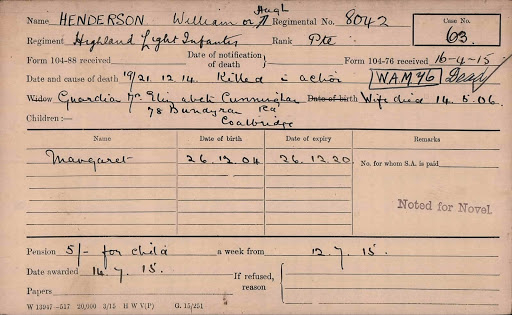 Name HENDERSON William or Hugh Regimental No. 8042 Case No. 63.
Regiment Highland Light Infantry Rank Pte
Form 104-88 received Date of notification of death Form 104-76 received 16-4-15
Date and cause of death 19/21.12.14. Killed in action WAM 46 Dead
Widow Guardian Mrs Elizabeth Cunningham Date of birth Wife died 14.5.06.
Children:— 78 Bundyran Rd
Coatbridge
Name Date of birth Date of expiry Remarks
Margaret 26.12.04 26.12.20 No. for whom S.A. is paid
Noted for Novel
Pension 5/- for child a week from 12.7.15.
Date awarded 14.7.15.
If refused, reason
Papers
W 13947—517 20,000 3/15 H W V(P) G. 15/251